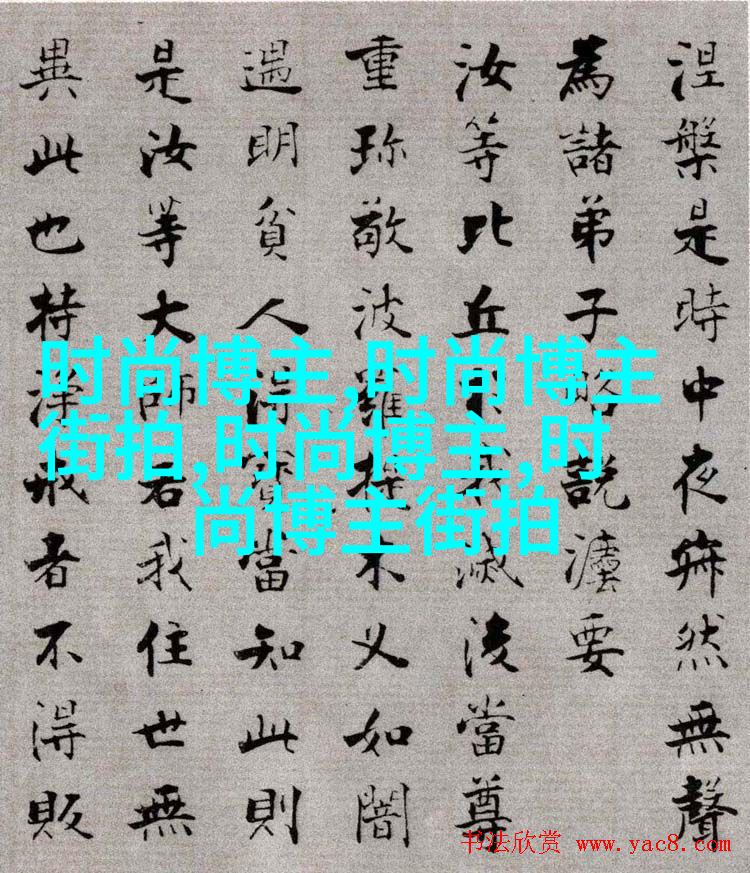 涅槃是時中夜寂然無聲
為諸弟子略說灋要
汝等比丘於我滅後當尊
重珍敬波羅提木叉如闇
遇明貧人得寶當知此則
是汝等大師若我住世無
異此也持淨戒者不得販
时尚博主,时尚博主
街拍,时尚博主,时
尚博主街拍
书法欣赏 www.yac8.com